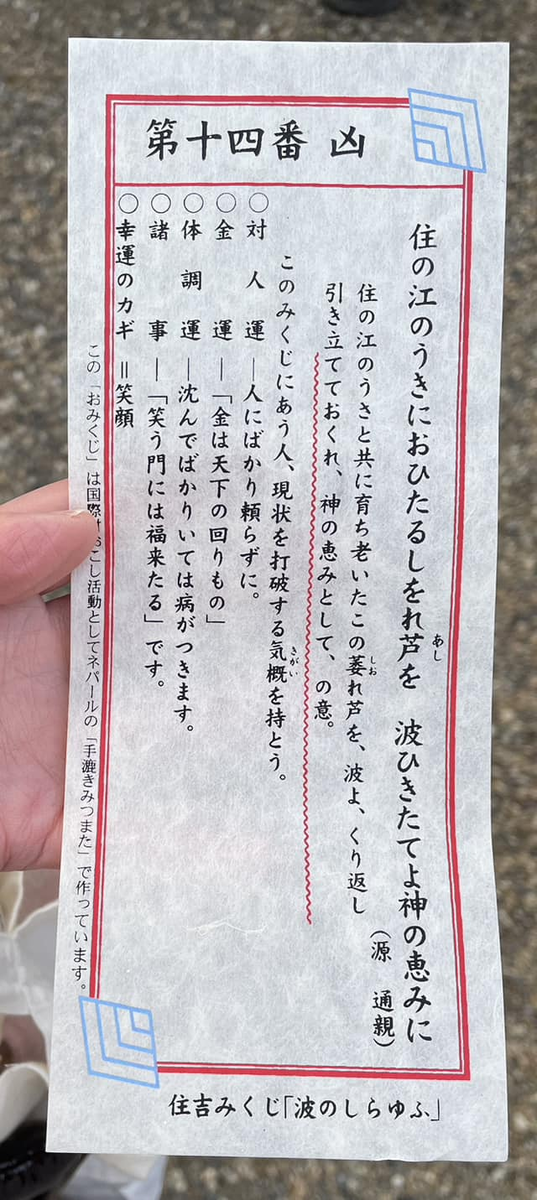 第十四番 凶
住の江のうきにおひたるしをれ芦を 波ひきたてよ神の恵みに
あし
(源 通親)
住の江のうさと共に育ち老いたこの萎れ芦を、波よ、くり返し
しお
引き立てておくれ、神の恵みとして、の意。
このみくじにあう人、現状を打破する気概を持とう。
きがい
○対人運―人にばかり頼らずに。
○金運―「金は天下の回りもの」
○体調運―沈んでばかりいては病がつきます。
○諸事―「笑う門には福来たる」です。
○幸運のカギ=笑顔
この「おみくじ」は国際 おこし活動としてネパールの「手漉きみつまた」で作っています。
住吉みくじ「波のしらゆふ」